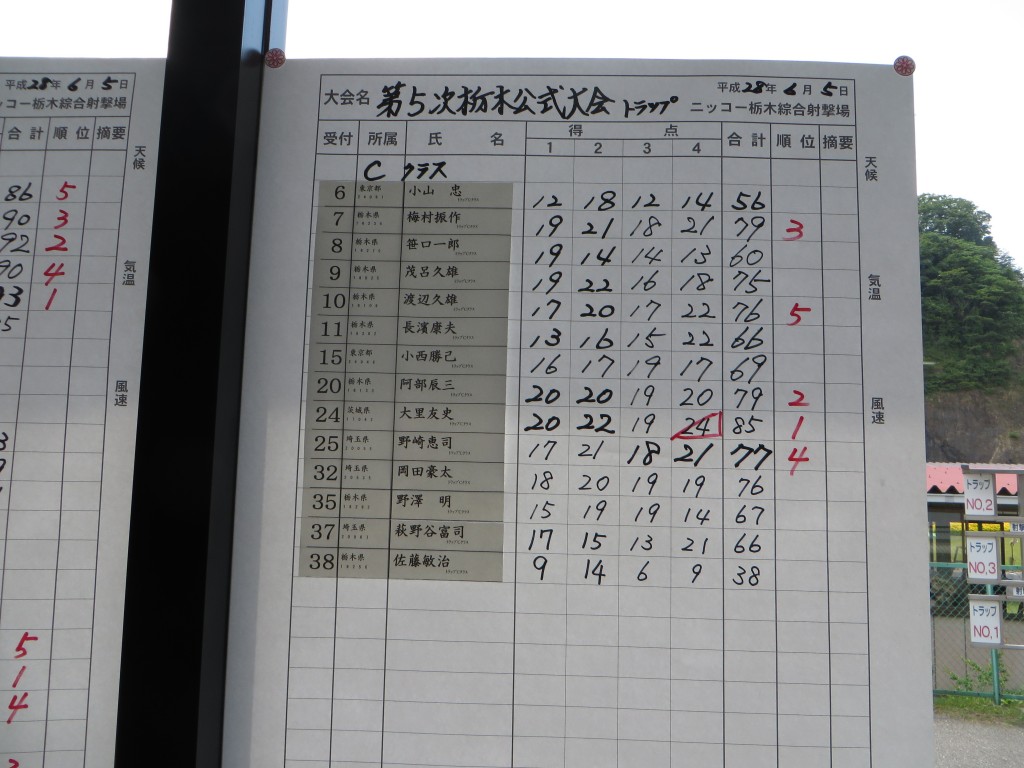 平成28年 6月 5日
ニッコー栃木綜合射撃場
合計 順位 摘要
天候
86 5
90 3
92 2
90 4
93 1
気温
風速
5
1
4
大会名 第5次栃木公式大会 トラップ
平成28年 6月 5日
ニッコー栃木綜合射撃場
受付 所属 氏名 得点 合計 順位 摘要
1 2 3 4
Cクラス
6 東京都 小山 忠 12 18 12 14 56
7 栃木県 梅村振作 19 21 18 21 79 3
8 栃木県 笹口一郎 19 14 14 13 60
9 栃木県 茂呂久雄 19 22 16 18 75
10 栃木県 渡辺久雄 17 20 17 22 76 5
11 栃木県 長濱康夫 13 16 15 22 66
15 東京都 小西勝己 16 17 19 17 69
20 栃木県 阿部辰三 20 20 19 20 79 2
24 茨城県 大里友史 20 22 19 24 85 1
25 埼玉県 野崎恵司 17 21 18 21 77 4
32 埼玉県 岡田豪太 18 20 19 19 76
35 栃木県 野澤 明 15 19 19 14 67
37 埼玉県 萩野谷富司 17 15 13 21 66
38 栃木県 佐藤敏治 9 14 6 9 38
天候
気温
風速
トラップ
NO,2
トラップ
NO,3
トラップ
NO,1